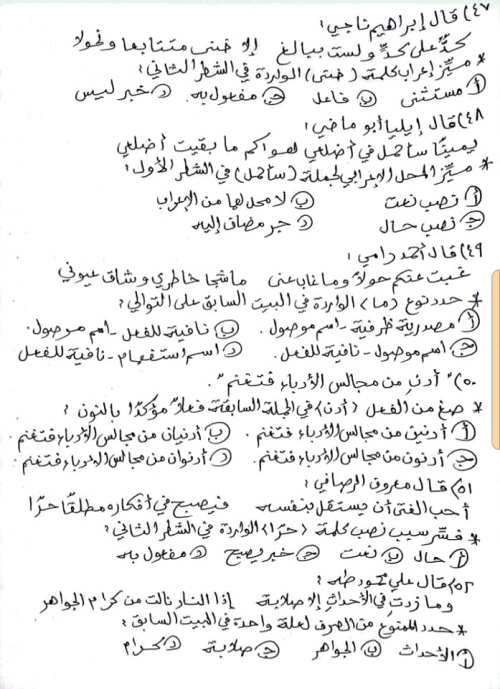 ٤٧) قال إبراهيم ناجي:
كحدٍّ على حدٍّ ولست ببالغ إلا ضنى متتابعا ونحولا
* ميّز إعراب كلمة (ضنى) الواردة في الشطر الثاني:
أ) مستثنى ب) فاعل ج) مفعول به د) خبر ليس
٤٨) قال إيليا أبو ماضي:
يمينًا سأحمل في أضلعي هواكم ما بقيت أضلعي
* ميّز المحل الإعرابي لجملة (سأحمل) في الشطر الأول:
أ) نصب نعت ب) لا محل لها من الإعراب
ج) نصب حال د) جر مضاف إليه
٤٩) قال أحمد رامي:
غبت عنكم حولاً وما غاب عني ما شجا خاطري وشاق عيوني
* حدد نوع (ما) الواردة في البيت السابق على التوالي:
أ) مصدرية ظرفية - اسم موصول. ب) نافية للفعل - اسم موصول.
ج) اسم موصول - نافية للفعل. د) اسم استفهام - نافية للفعل
٥٠) "أدن من مجالس الأدباء فتغنم".
* صغ من الفعل (أدن) في الجملة السابقة فعلاً مؤكدًا بالنون:
أ) أدنين من مجالس الأدباء فتغنم. ب) أدنيان من مجالس الأدباء فتغنم.
ج) أدنون من مجالس الأدباء فتغنم. د) أدنوان من مجالس الأدباء فتغنم.
٥١) قال معروف الرصافي:
أحب الفتى أن يستقل بنفسه فيصبح في أفكاره مطلقًا حرًا
* فسّر سبب نصب كلمة (حرًا) الواردة في الشطر الثاني:
أ) حال ب) نعت ج) خبر يصبح د) مفعول به
٥٢) قال علي محمود طه:
وما زدتِ في الأحداث إلا صلابة إذا النار نالت من كرام الجواهر
* حدد الممنوع من الصرف لعلة واحدة في البيت السابق:
أ) الأحداث ب) الجواهر ج) صلابة د) كرام